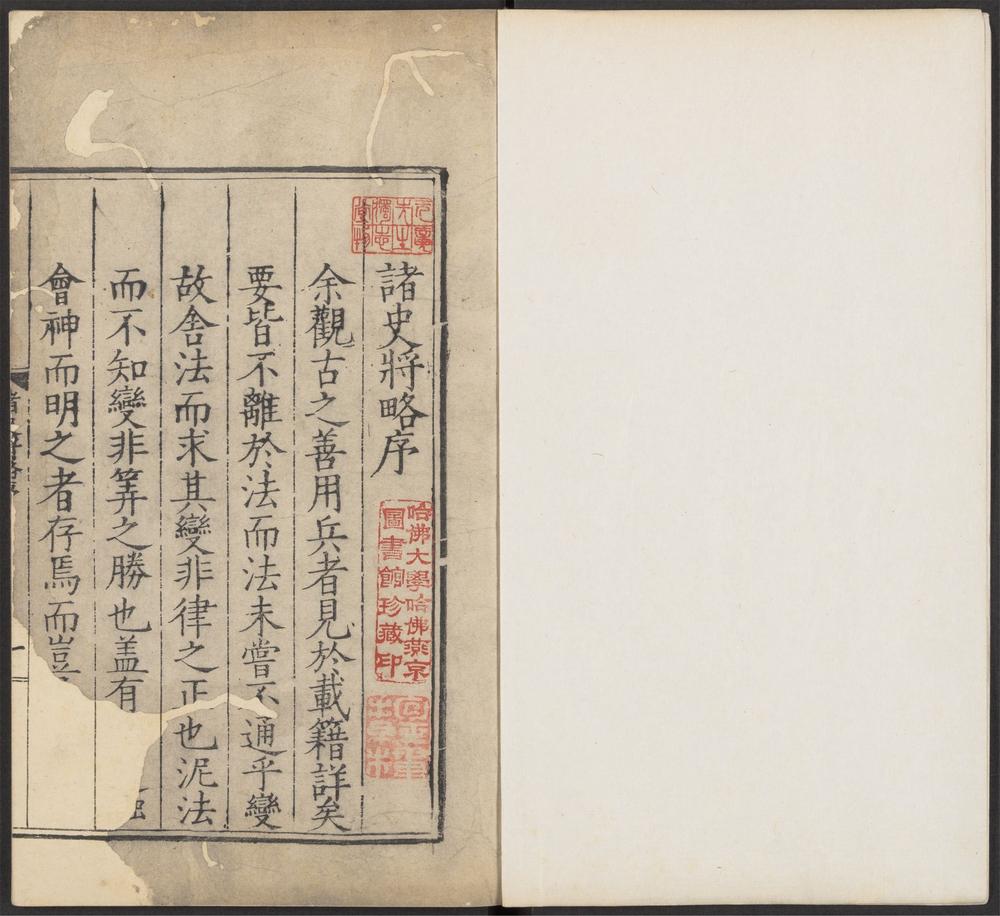 諸史將略序
余觀古之善用兵者見於載籍詳矣
要皆不離於法而法未嘗不通乎變
故舍法而求其變非律之正也泥法
而不知變非筭之勝也盖有
會神而明之者存焉而豈
哈佛大學哈佛燕京
圖書館珍藏印